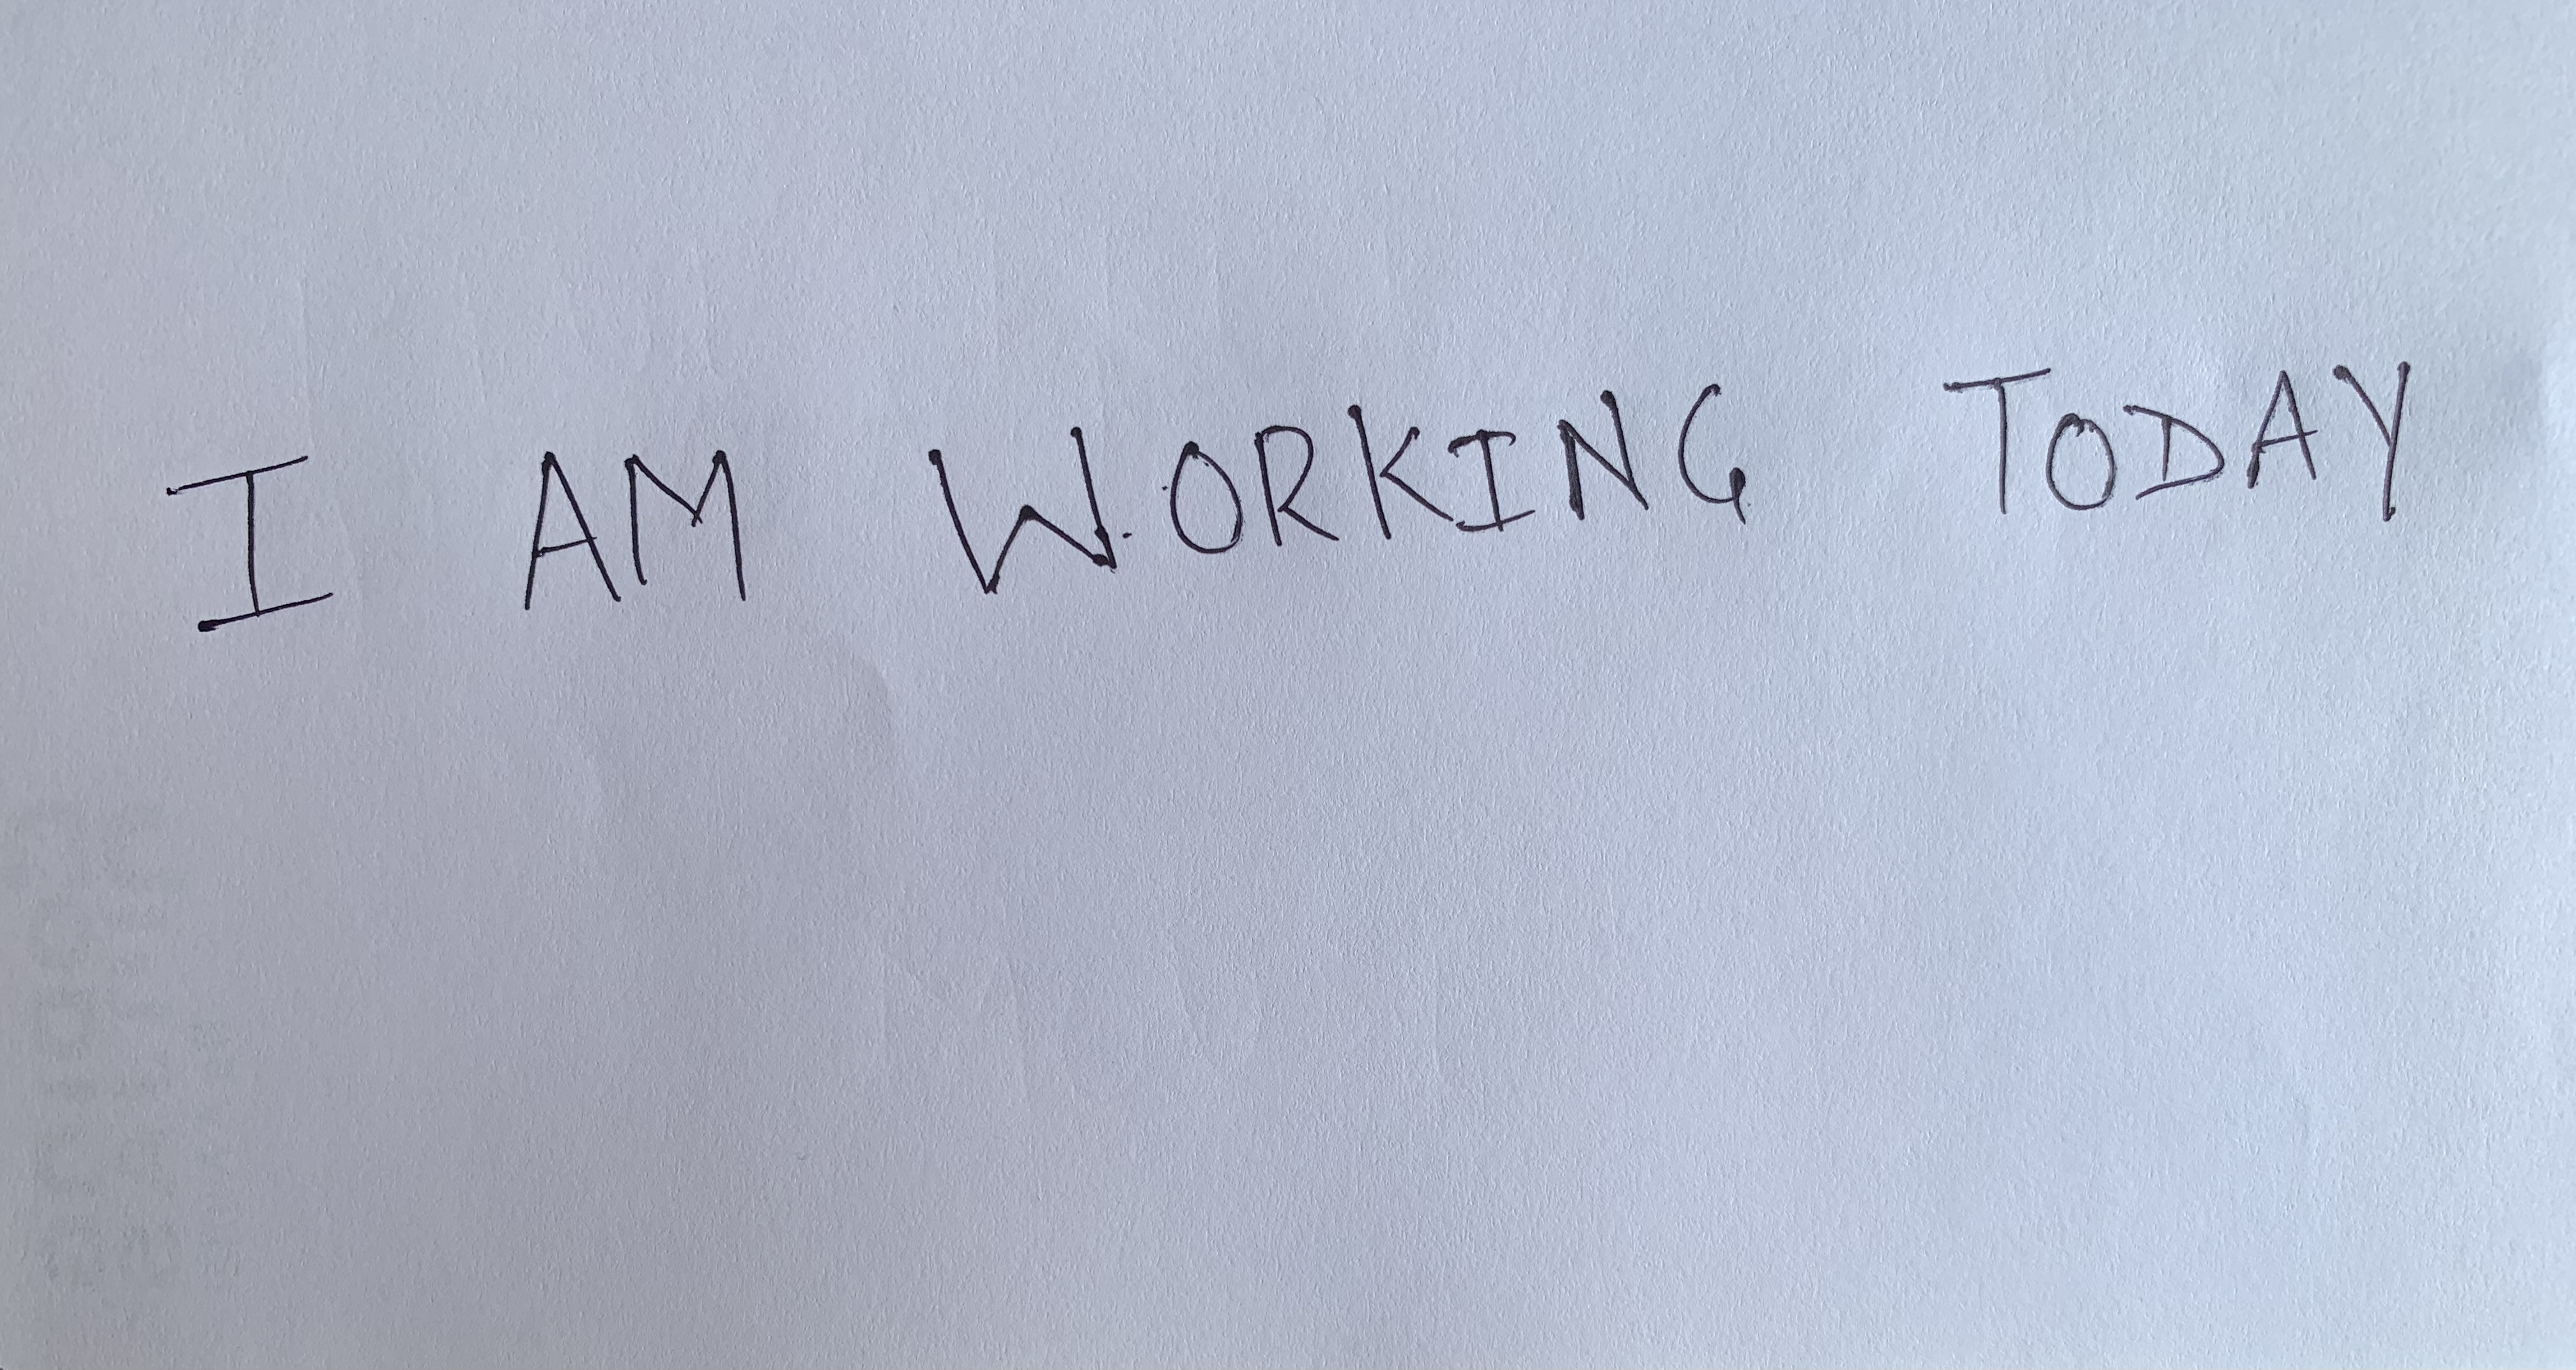 I AM WORKING TODAY